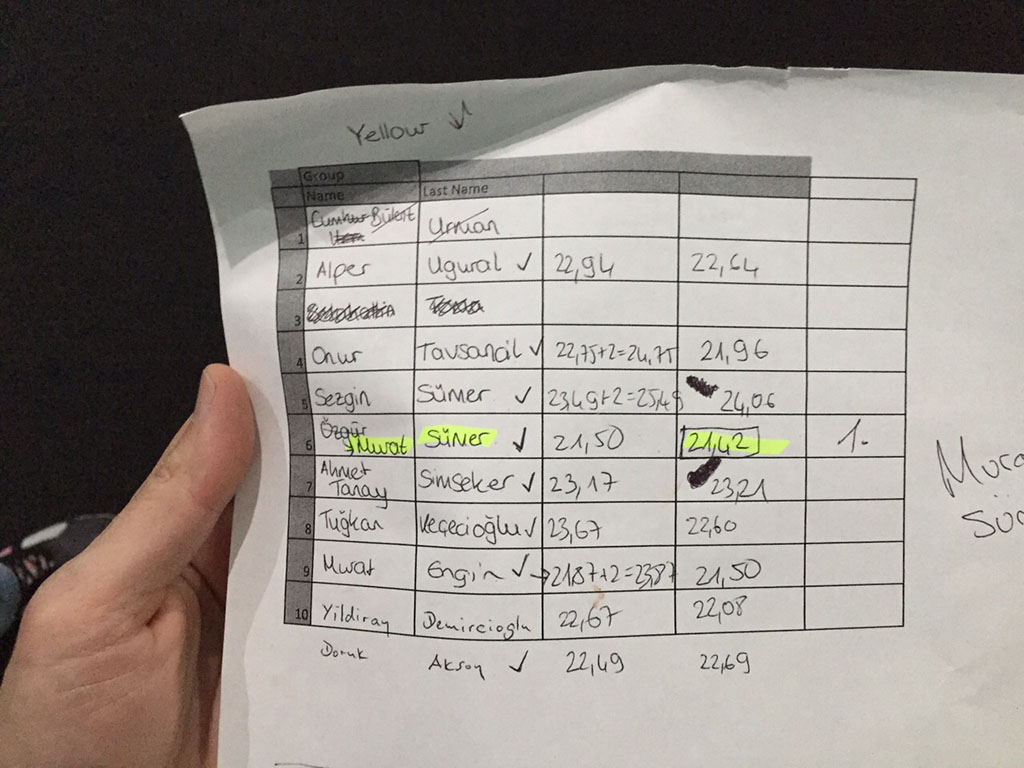 Yellow
Group
Name Last Name
1 Cumhur Bülent Urman
2 Alper Ugural ✓ 22,94 22,64
3
4 Onur Tavsancil ✓ 22,75+2=24,75 21,96
5 Sezgin Sümer ✓ 23,49+2=25,49 24,06
6 Özgür Murat Süner ✓ 21,50 21,42 1.
7 Ahmet Tanay Simseker ✓ 23,17 23,21
8 Tuğkan Keçecioğlu ✓ 23,67 22,60
9 Murat Engin ✓ 21,87+2=23,87 21,50
10 Yildiray Demircioglu 22,67 22,08
Doruk Aksoy ✓ 22,49 22,69